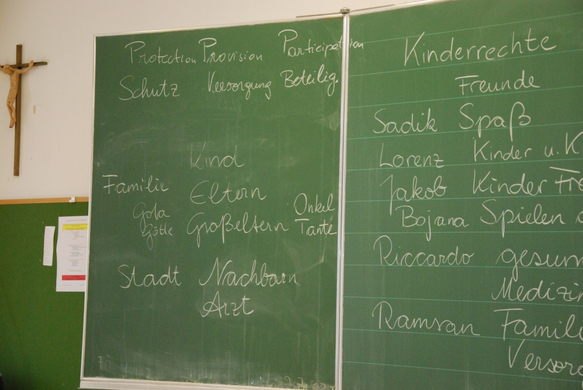 Protection Provision Participation
Schutz Versorgung Beteilig.
Kind
Familie Eltern
Gota Onkel
Götte Großeltern Tante
Stadt Nachbarn
Arzt
Kinderrechte
Freunde
Sadik Spaß
Lorenz Kinder u. K
Jakob Kinder
Bojana Spielen
Riccardo gesun
Medizin
Ramsran Famili
Versor